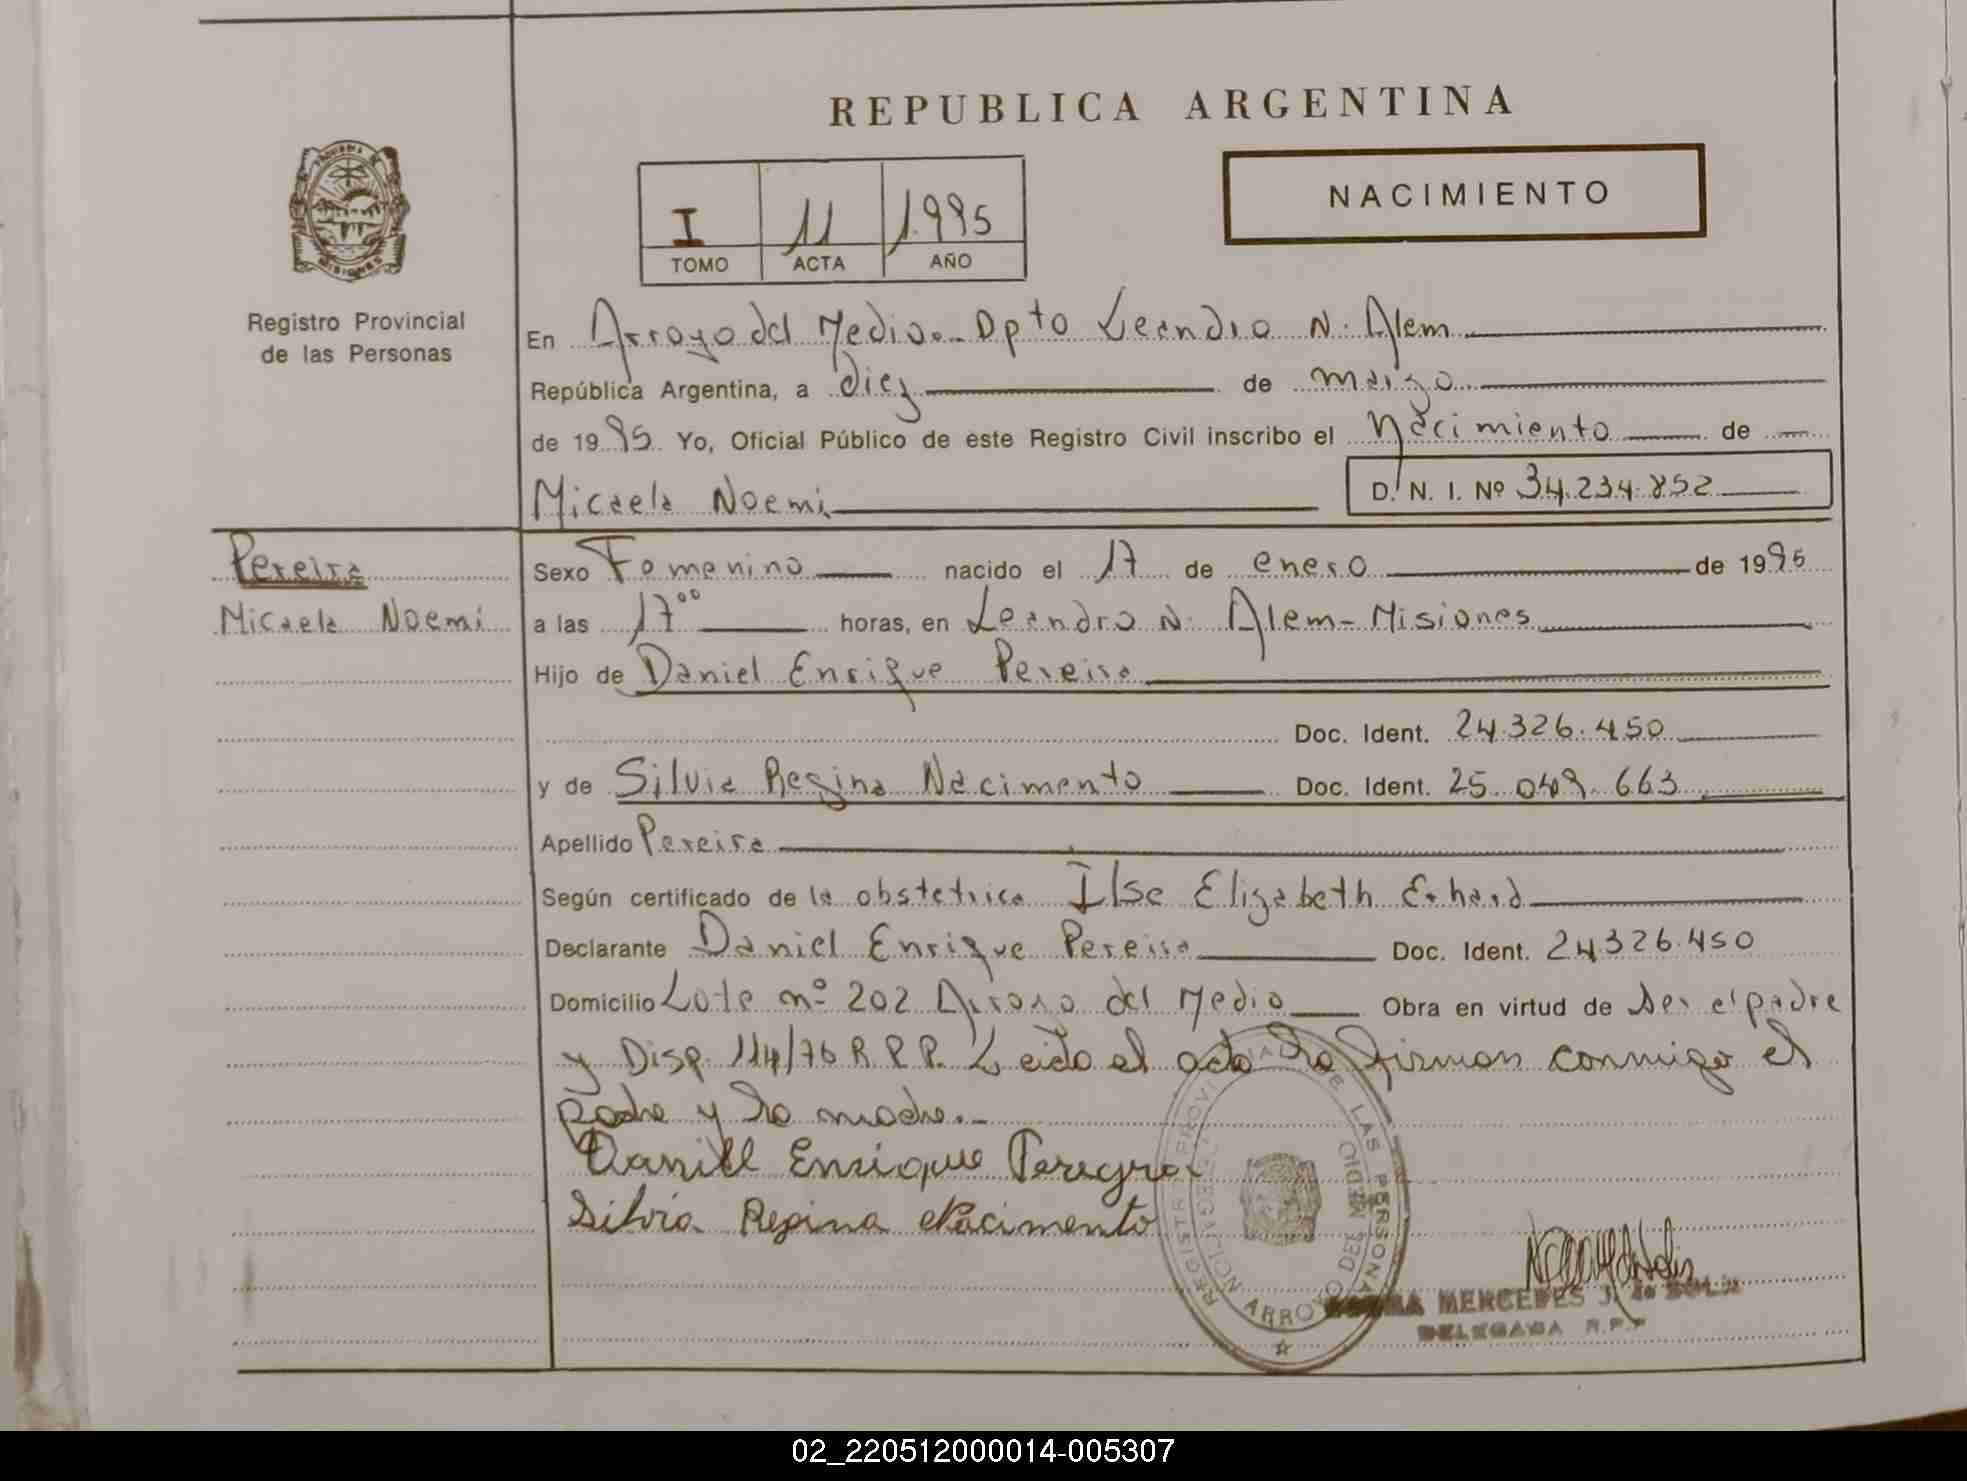 REPUBLICA ARGENTINA
NACIMIENTO
I 11 1.995
TOMO ACTA AÑO
PROVINCIA DE
MISIONES
Registro Provincial
de las Personas
En Arroyo del Medio.- Dpto Leandro N. Alem
República Argentina, a diez de marzo
de 1995 Yo, Oficial Público de este Registro Civil inscribo el Nacimiento de
Micaela Noemi D. N. I. Nº 34.234.852
Pereira
Micaela Noemi
Sexo Femenino nacido el 17 de enero de 1995
a las 17⁰⁰ horas, en Leandro N. Alem - Misiones
Hijo de Daniel Enrique Pereira
Doc. Ident. 24.326.450
y de Silvia Regina Nacimento Doc. Ident. 25.049.663
Apellido Pereira
Según certificado de la obstetrica Ilse Elizabeth Erhard
Declarante Daniel Enrique Pereira Doc. Ident. 24.326.450
Domicilio Lote nº 202 Arroyo del Medio Obra en virtud de ser el padre
y Disp. 114/76 R.P.P. Leida el acta la firman conmigo el
padre y la madre.-
Daniel Enrique Pereyra
Silvia Regina Nacimento
REGISTRO PROVINCIAL DE LAS PERSONAS
ARROYO DEL MEDIO
MERCEDES J. de
DELEGADA R.P.P
02_220512000014-005307